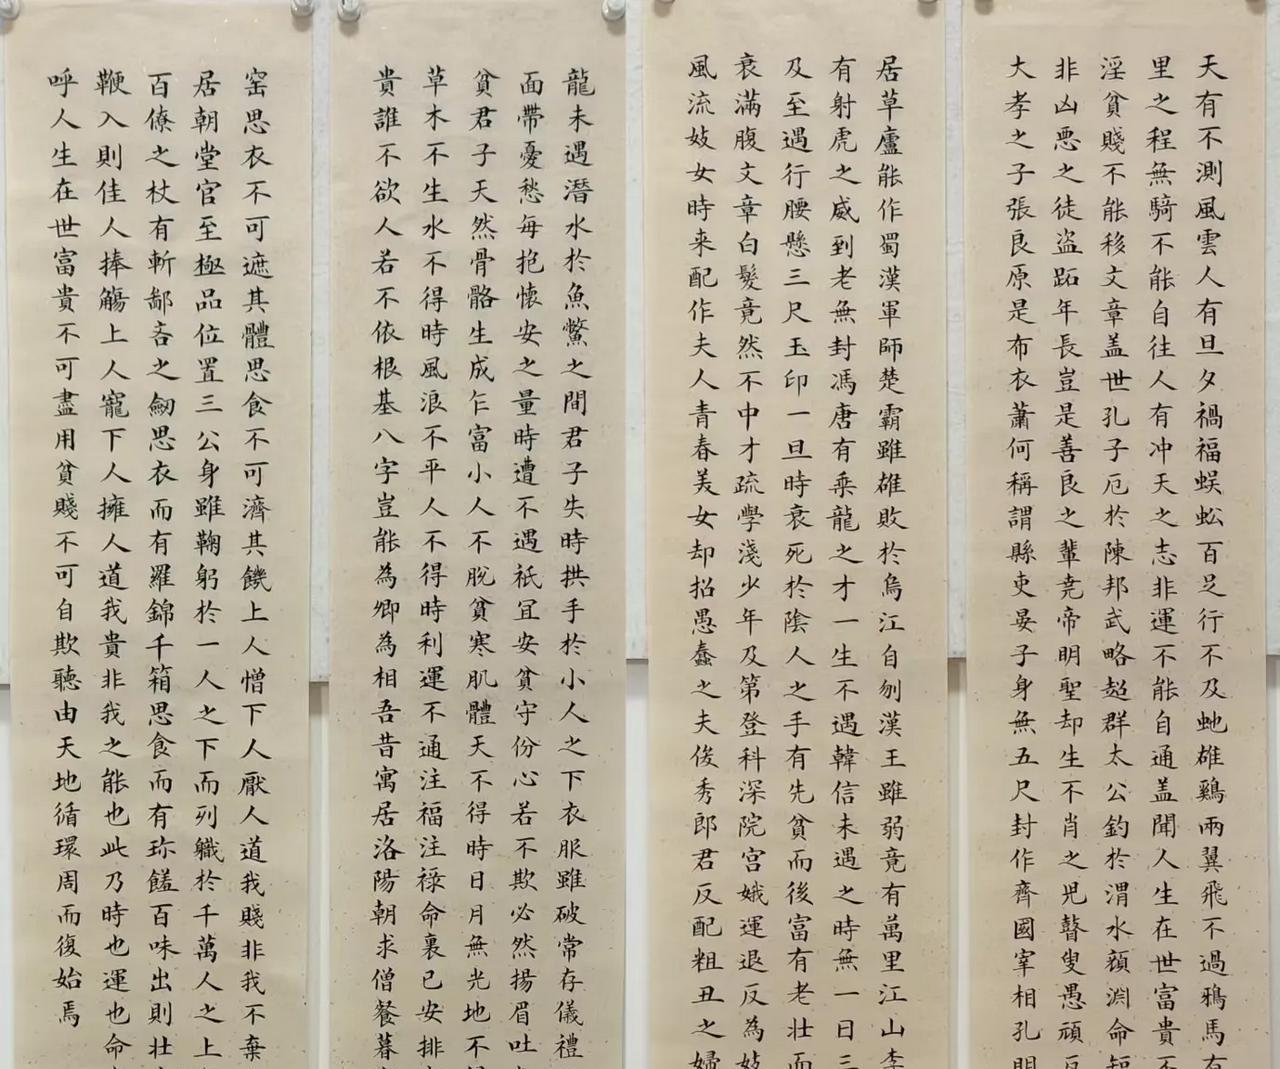 天有不測風雲人有旦夕禍福蜈蚣百足行不及虵雄鷄兩翼飛不過鴉馬有
里之程無騎不能自往人有冲天之志非運不能自通盖聞人生在世富貴不
淫貧賤不能移文章盖世孔子厄於陳邦武略超群太公釣於渭水顏淵命短
非凶悪之徒盗跖年長豈是善良之輩尭帝明聖却生不肖之児瞽叟愚頑反
大孝之子張良原是布衣蕭何稱謂縣吏晏子身無五尺封作齊國宰相孔明
居草廬能作蜀漢軍師楚霸雖雄敗於烏江自刎漢王雖弱竟有萬里江山李
有射虎之威到老無封馮唐有乗龍之才一生不遇韓信未遇之時無一日三
及至遇行腰懸三尺玉印一旦時衰死於陰人之手有先貧而後富有老壮而
衰滿腹文章白髮竟然不中才疏學淺少年及第登科深院宫娥運退反為妓
風流妓女時来配作夫人青春美女却招愚蠢之夫俊秀郎君反配粗丑之婦
龍未遇潛水於魚鱉之間君子失時拱手於小人之下衣服雖破常存儀禮
面帶憂愁每抱懷安之量時遭不遇祇宜安貧守份心若不欺必然揚眉吐
貧君子天然骨骼生成乍富小人不脫貧寒肌體天不得時日月無光地不
草木不生水不得時風浪不平人不得時利運不通注福注禄命裏已安排
貴誰不欲人若不依根基八字豈能為卿為相吾昔寓居洛陽朝求僧餐暮
窑思衣不可遮其體思食不可濟其饑上人憎下人厭人道我賤非我不棄
居朝堂官至極品位置三公身雖鞠躬於一人之下而列職於千萬人之上
百僚之杖有斬鄙吝之劒思衣而有羅錦千箱思食而有珍饈百味出則壮
鞭入則佳人捧觴上人寵下人擁人道我貴非我之能也此乃時也運也命
呼人生在世富貴不可盡用貧賤不可自欺聽由天地循環周而復始焉